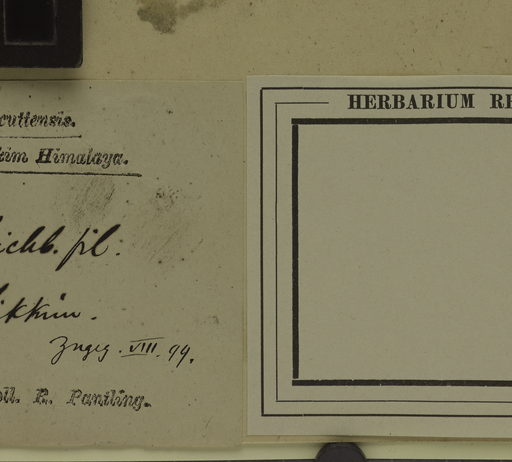 cuttensis.
kim Himalaya.
ichb. fil:
ikkim.
Zugeg. VIII. 99.
oll. R. Pantling.
HERBARIUM RE